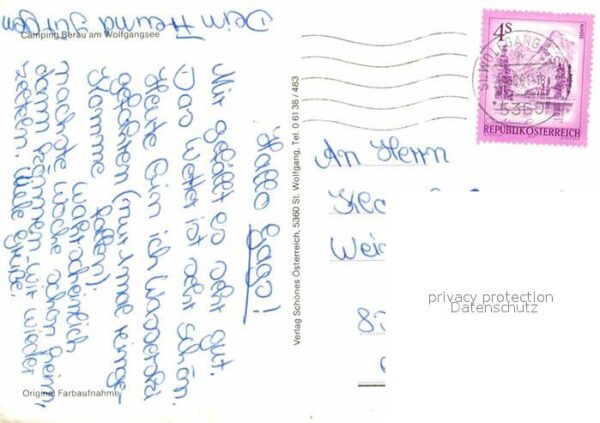 Camping Berau am Wolfgangsee
Hallo
Mir gefällt es sehr gut.
Das Wetter ist sehr schön.
Heute bin ich Wasserski
gefahren (nur 1 mal reinge-
fallen)
Komme wahrscheinlich
nächste Woche schon heim,
dann können wir wieder
Viele Grüße.
Dein Freund Jürgen
Original Farbaufnahme
Verlag Schönes Österreich, 5360 St. Wolfgang, Tel. 0 61 38 / 483
4S
REPUBLIK ÖSTERREICH
ST. WOLFGANG
5360
An Herrn
Wei
privacy protection
Datenschutz